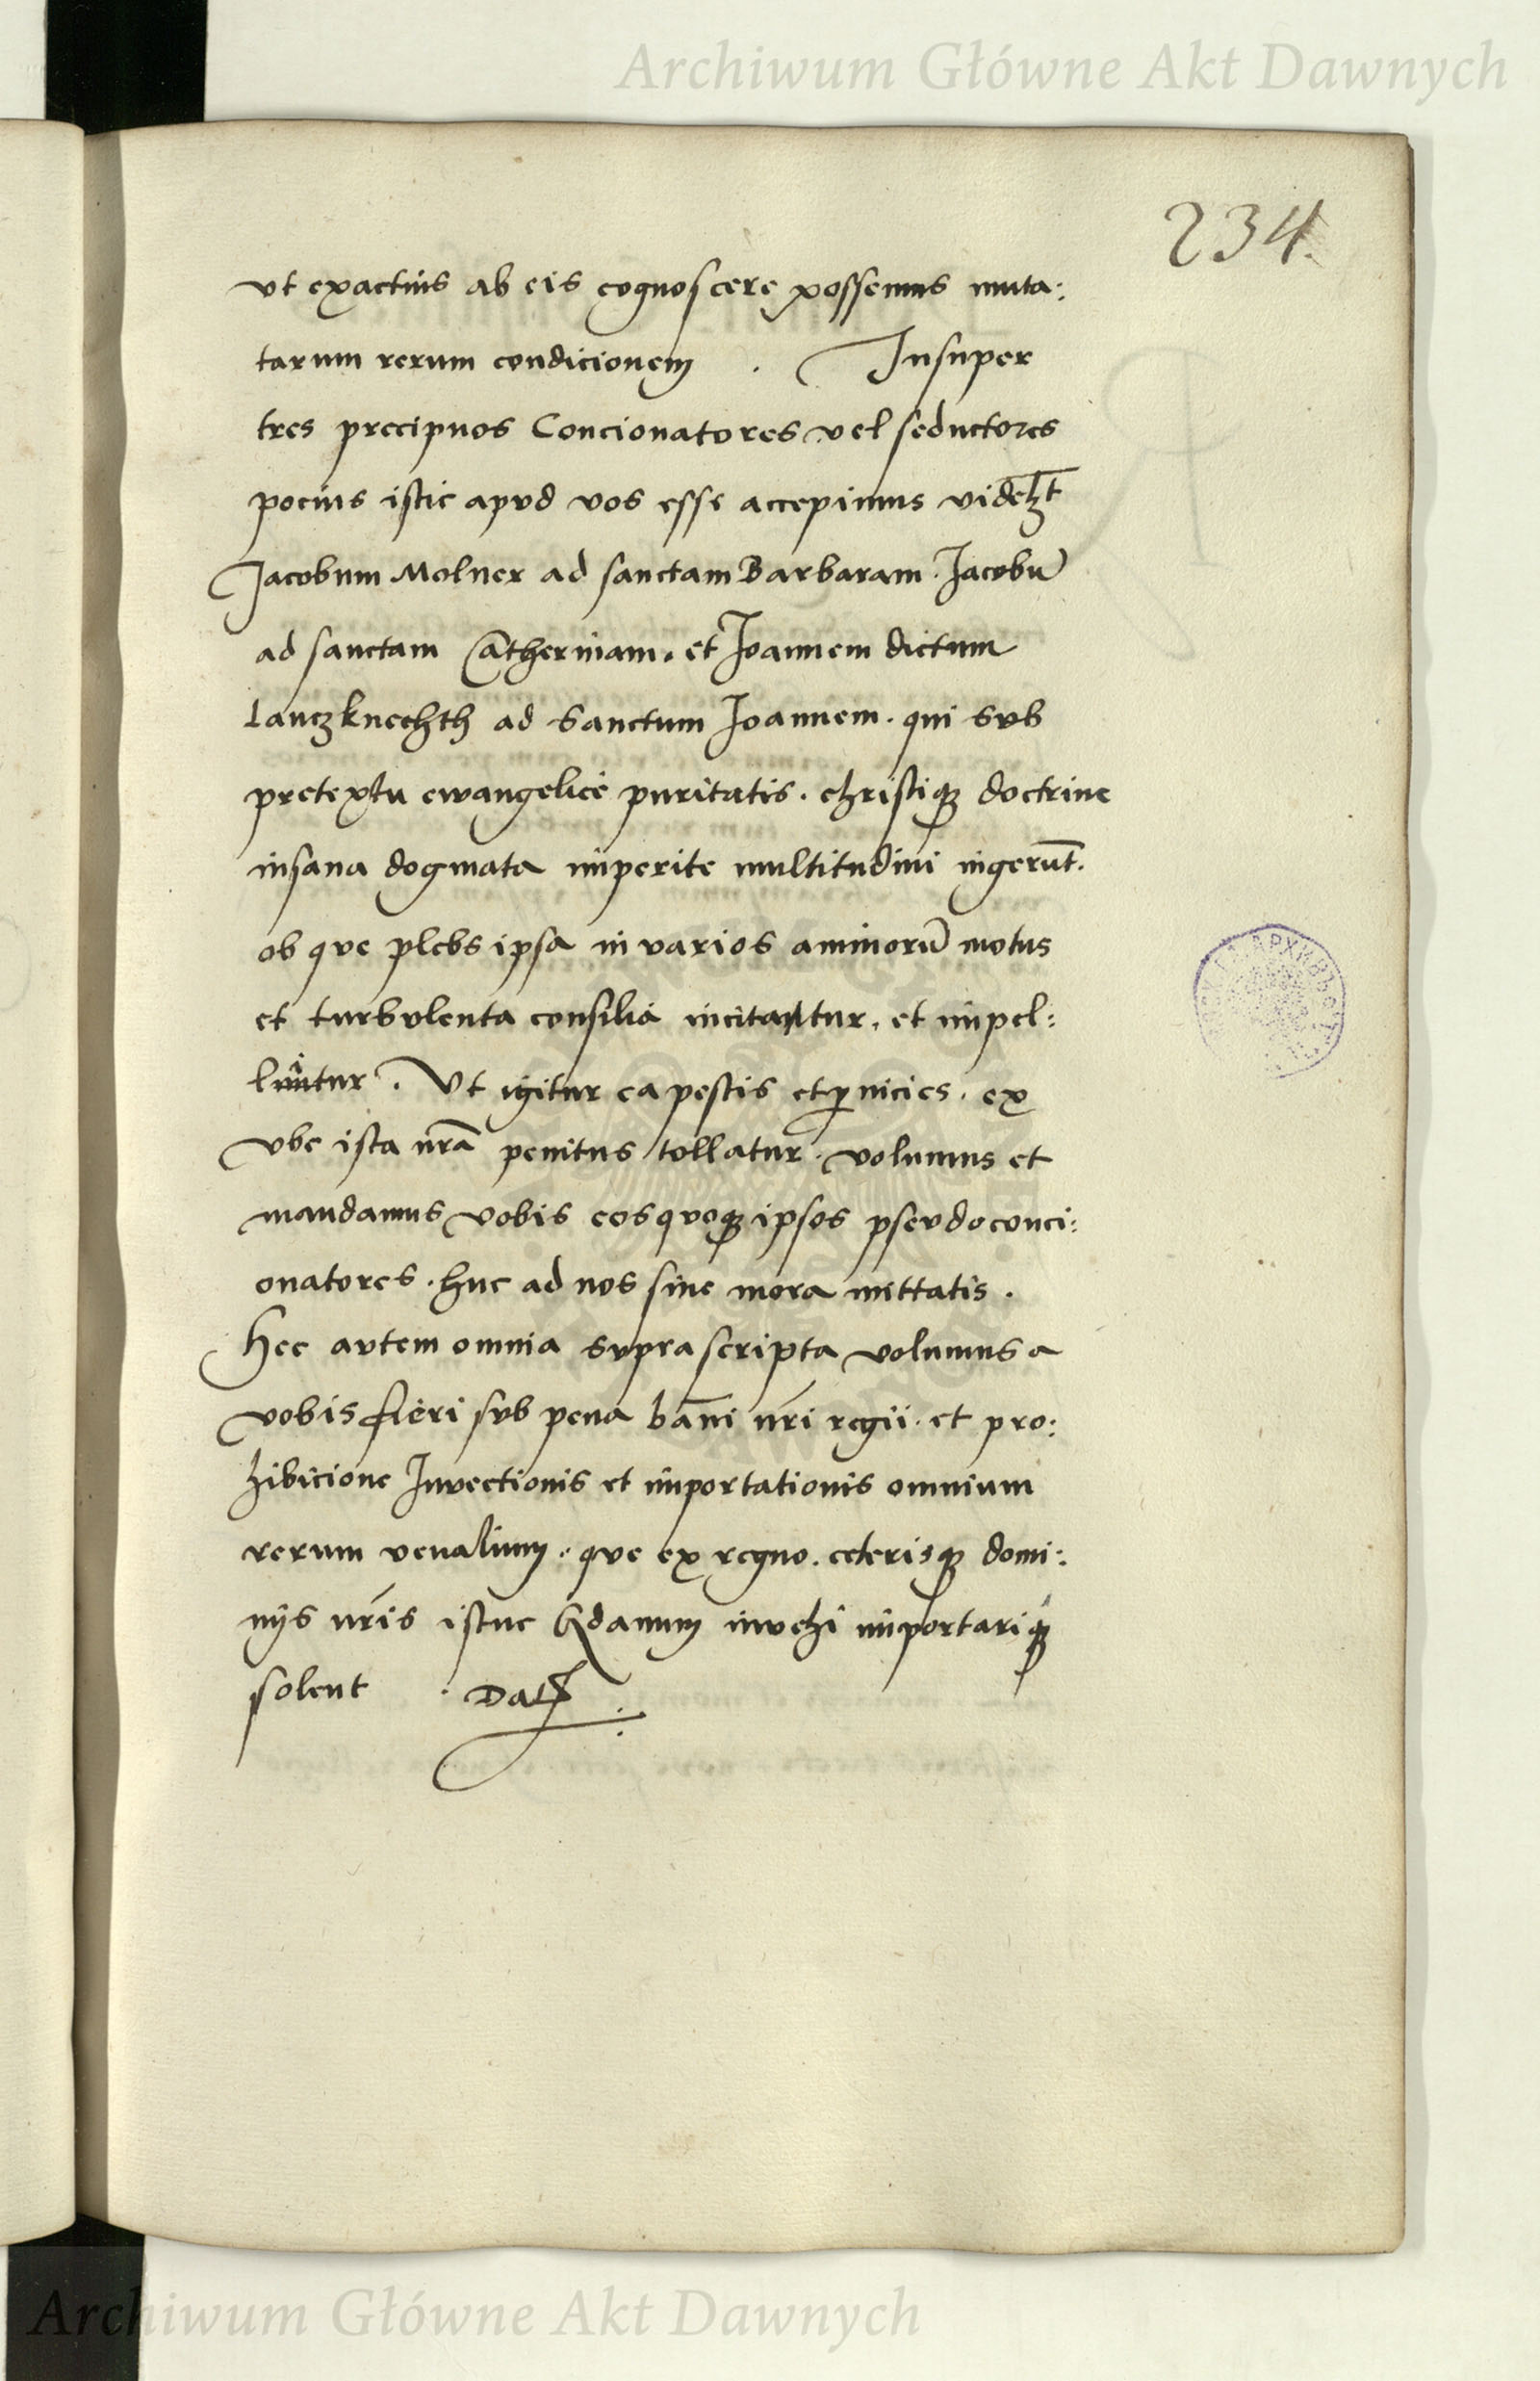 Archiwum Główne Akt Dawnych
234.
vt exactius ab eis cognoscere possemus muta:
tarum rerum condicionem . Insuper
tres precipuos Concionatores vel seductores
pocius istic apud vos esse accepimus videlzt
Jacobum Molner ad sanctam Barbaram . Jacobū
ad sanctam Catherinam . et Joannem dictum
lanczknechth ad Sanctum Joannem . qui sub
pretextu ewangelice puritatis . christiq doctrine
insana dogmata imperite multitudini ingerūt .
ob que plebs ipsa in varios animorū motus
et turbulenta consilia incitantur . et impel:
luntur . Ut igitur ea pestis et pnicies . ex
vbe ista nrā penitus tollatur . volumus et
mandamus vobis eos quoq ipsos pseudoconci:
onatores . huc ad nos sine mora mittatis .
Hec autem omnia supra scripta volumus a
vobis fieri sub pena bāni nri regii . et pro:
hibicione Invectionis et importationis omnium
rerum venalium . que ex regno . ceterisq domi:
nijs nris istuc Gdanum invehi importariq
solent . Dat
Archiwum Główne Akt Dawnych